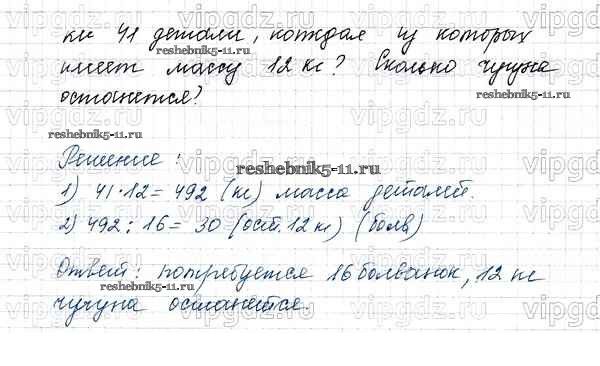 ки 41 детали, каждая из которых
имеет массу 12 кг? Сколько чугуна
останется?
Решение:
1) 41·12=492 (кг) масса деталей.
2) 492:16= 30 (ост. 12 кг) (болв)
Ответ: потребуется 16 болванок, 12 кг
чугуна останется.
reshebnik5-11.ru
reshebnik5-11.ru
reshebnik5-11.ru
reshebnik5-11.ru
reshebnik5-11.ru
vipgdz.ru